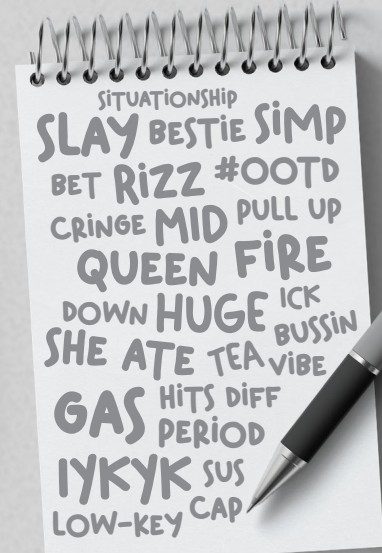 SiTUATiONSHiP
SLAY BESTiE SiMP
BET RiZZ #OOTD
CRiNGE MID PULL UP
QUEEN FiRE
DOWN HUGE ICK
BUSSiN
SHE ATE TEA ViBE
GAS HiTS DiFF
PERiOD
IYKYK SUS
LOW-KEY CAP